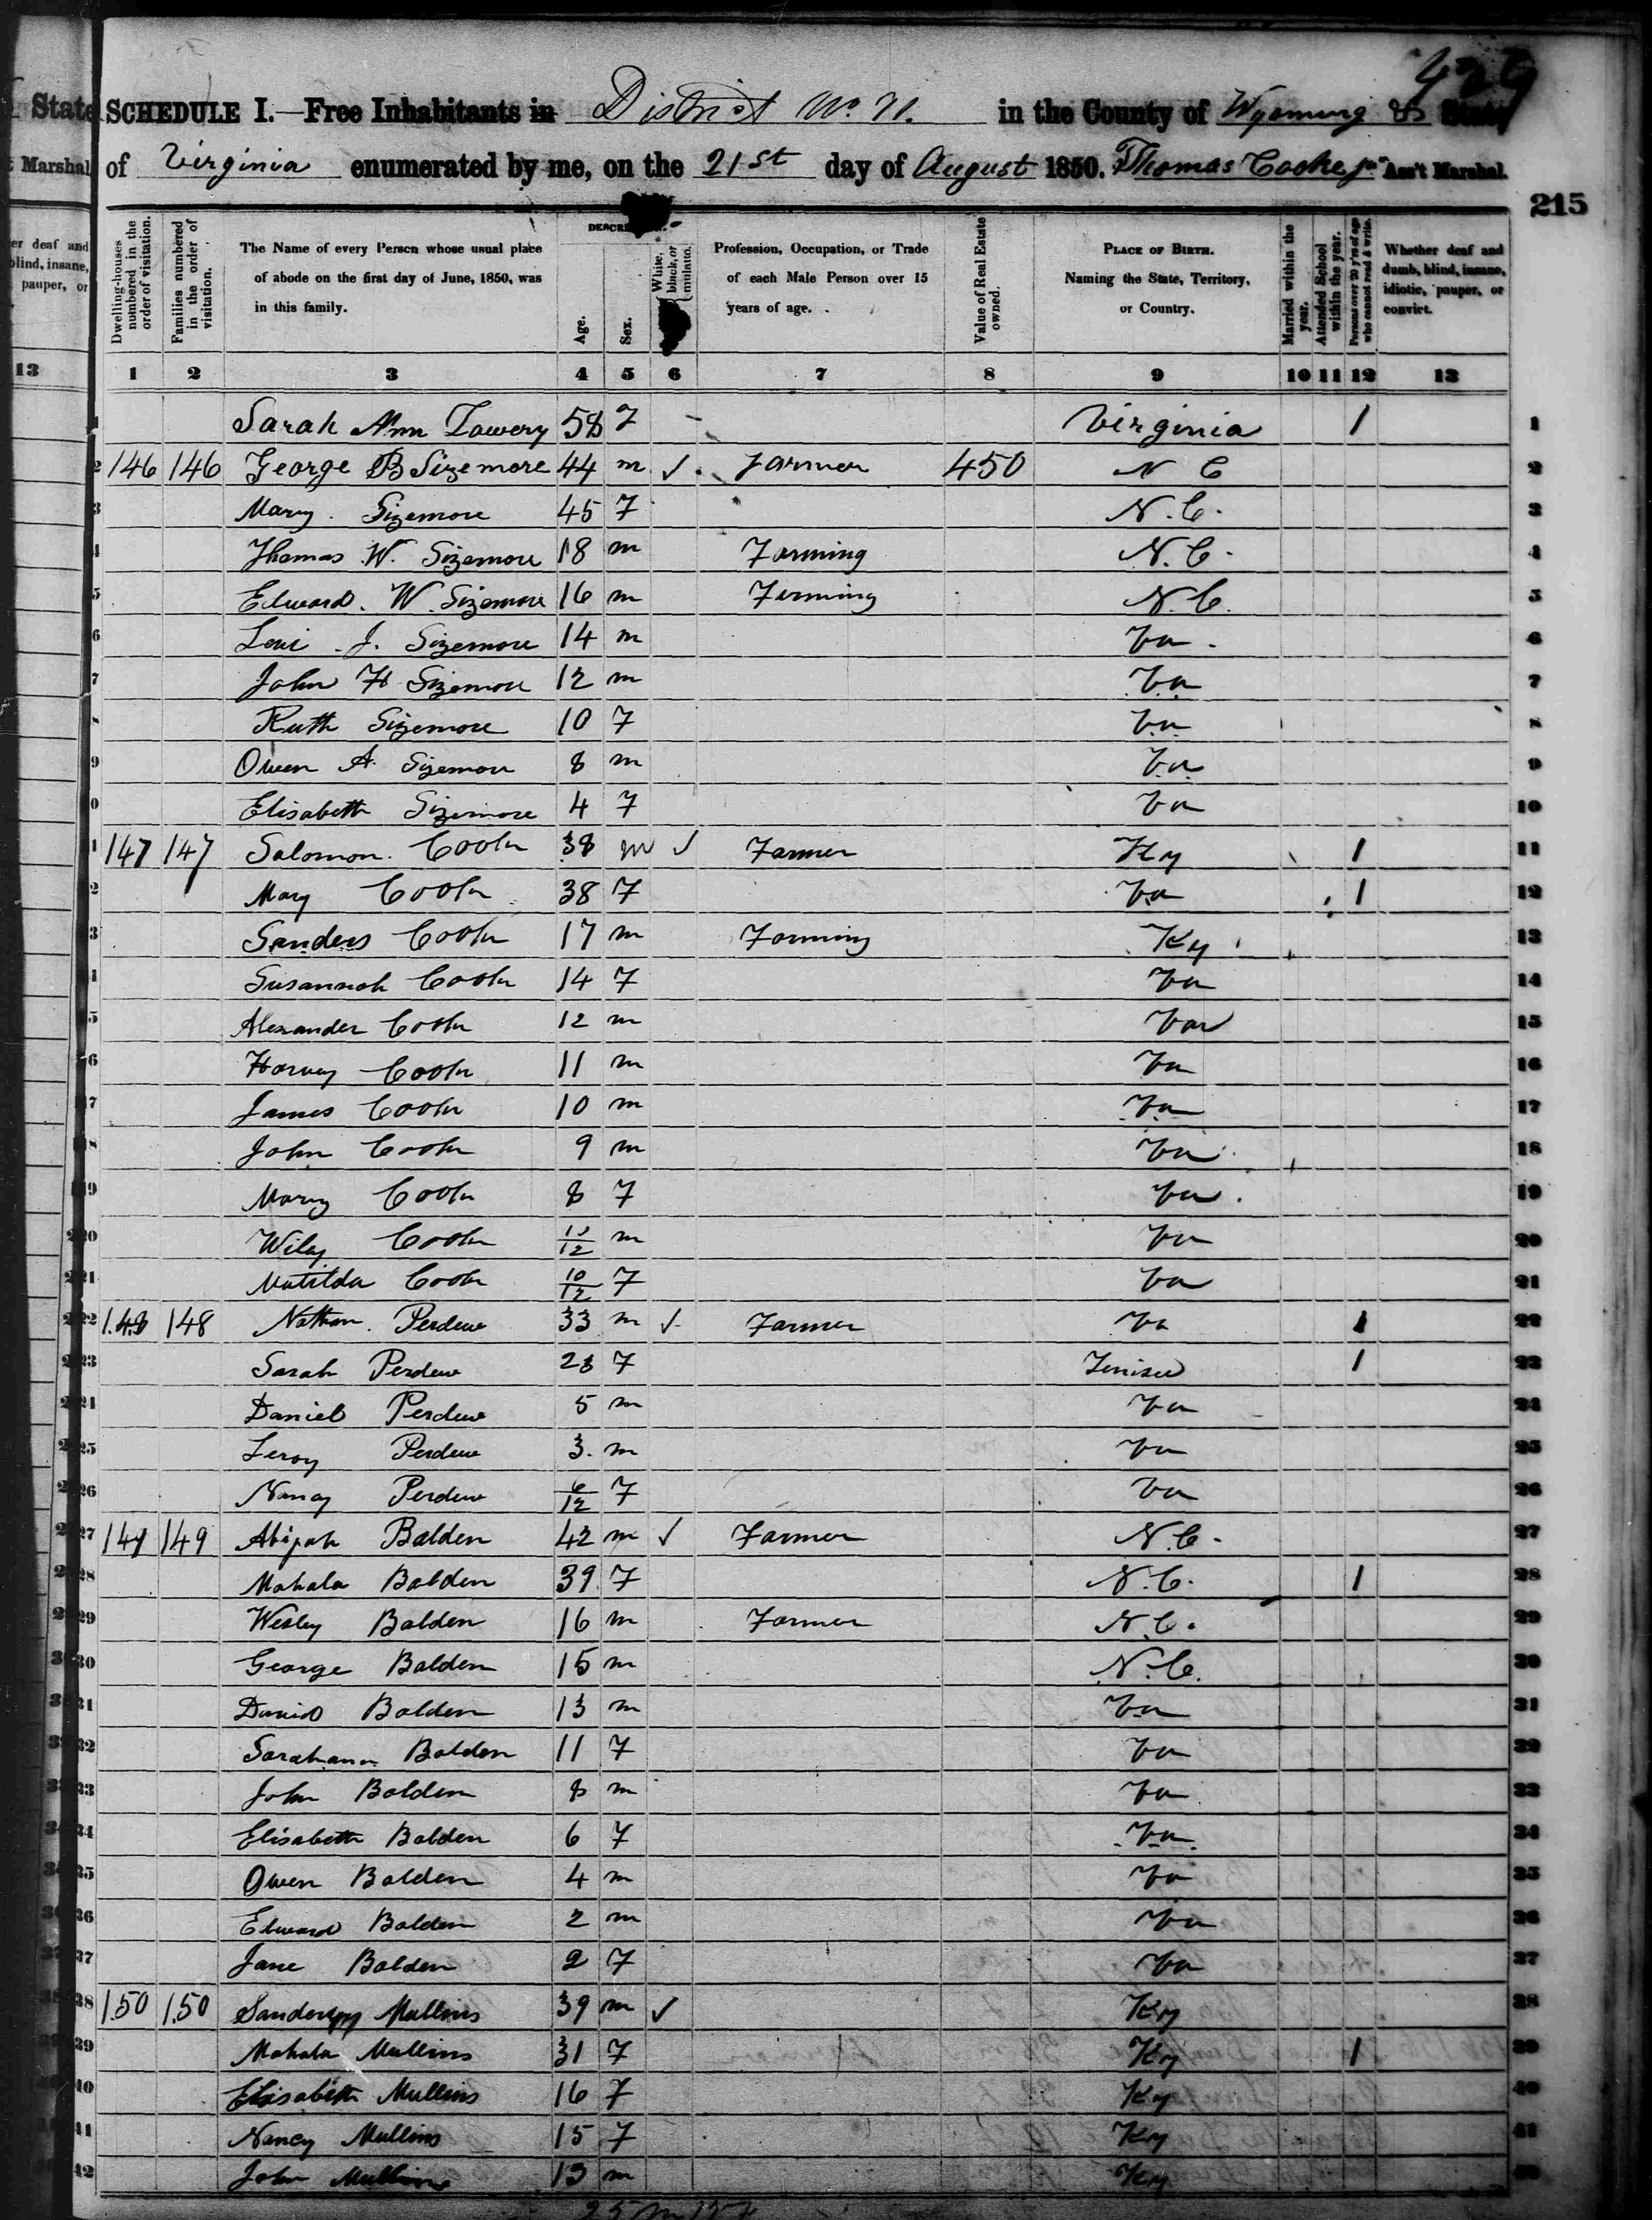 429
SCHEDULE I.—Free Inhabitants in District No. 71. in the County of Wyoming & State
of Virginia enumerated by me, on the 21st day of August 1850. Thomas Cooke jr Ass't Marshal.
215
State
Marshal
er deaf and
blind, insane,
pauper, or
13
Dwelling-houses numbered in the order of visitation.
Families numbered in the order of visitation.
The Name of every Person whose usual place of abode on the first day of June, 1850, was in this family.
Age.
Sex.
White, black, or mulatto.
Profession, Occupation, or Trade of each Male Person over 15 years of age.
Value of Real Estate owned.
PLACE OF BIRTH. Naming the State, Territory, or Country.
Married within the year.
Attended School within the year.
Persons over 20 y'rs of age who cannot read & write.
Whether deaf and dumb, blind, insane, idiotic, pauper, or convict.
1 2 3 4 5 6 7 8 9 10 11 12 13
Sarah Ann Lowery 58 F Virginia 1 1
146 146 George B Sizemore 44 m ✓ Farmer 450 N C 2
Mary Sizemore 45 F N.C. 3
Thomas W. Sizemore 18 m Farming N.C. 4
Edward. W. Sizemore 16 m Ferming N.C. 5
Levi J. Sizemore 14 m Va. 6
John H Sizemore 12 m Va 7
Ruth Sizemore 10 F Va 8
Owen A. Sizemore 8 m Va 9
Elisabeth Sizemore 4 F Va 10
147 147 Solomon. Cook 38 m ✓ Farmer Ky 1 11
Mary Cook 38 F Va 1 12
Sanders Cook 17 m Farming Ky 13
Susannah Cook 14 F Va 14
Alexander Cook 12 m Va 15
Harvey Cook 11 m Va 16
James Cook 10 m Va 17
John Cook 9 m Va 18
Mary Cook 8 F Va. 19
Wiley Cook m Va 20
Matilda Cook 10/12 F Va 21
148 148 Nathan. Perdew 33 m ✓ Farmer Va 1 22
Sarah Perdew 28 F Tenisee 1 23
Daniel Perdew 5 m Va 24
Leroy Perdew 3. m Va 25
Nancy Perdew 6/12 F Va 26
149 149 Abijah Balden 42 m ✓ Farmer N.C. 27
Mahala Balden 39 F N.C. 1 28
Wesley Balden 16 m Farmer N.C. 29
George Balden 15 m N.C. 30
David Balden 13 m Va 31
Sarahann Balden 11 F Va 32
John Balden 8 m Va 33
Elisabeth Balden 6 F Va 34
Owen Balden 4 m Va 35
Edward Balden 2 m Va 36
Jane Balden 2 F Va 37
150 150 Mullins 39 m ✓ Ky 38
Mahala Mullins 31 F Ky 1 39
Elisabeth Mullins 16 F Ky 40
Nancy Mullins 15 F Ky 41
John Mullins 13 m Ky